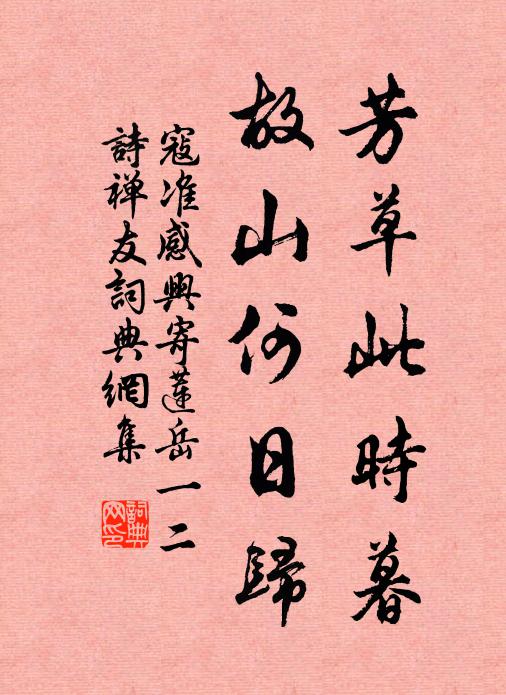 芳草此時暮
故山何日歸
寇准感興寄蓮岳一二
詩禅友詞典網集
詞典網印